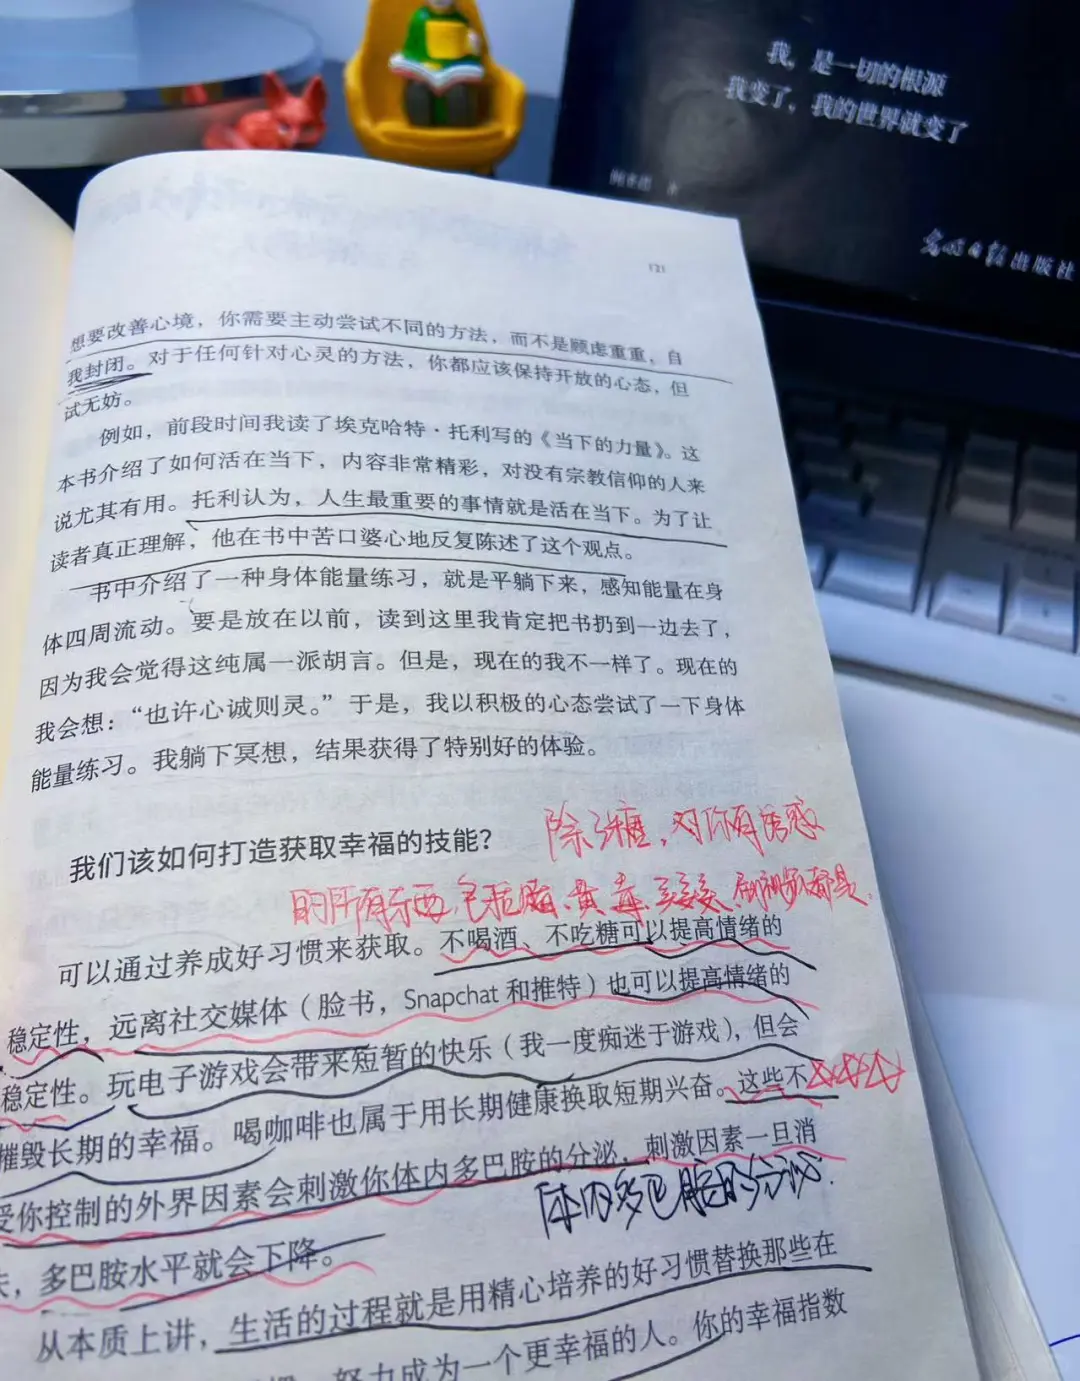 我，是一切的根源
我变了，我的世界就变了
光明日报出版社
121
想要改善心境，你需要主动尝试不同的方法，而不是顾虑重重，自
我封闭。对于任何针对心灵的方法，你都应该保持开放的心态，但
试无妨。
例如，前段时间我读了埃克哈特·托利写的《当下的力量》。这
本书介绍了如何活在当下，内容非常精彩，对没有宗教信仰的人来
说尤其有用。托利认为，人生最重要的事情就是活在当下。为了让
读者真正理解，他在书中苦口婆心地反复陈述了这个观点。
书中介绍了一种身体能量练习，就是平躺下来，感知能量在身
体四周流动。要是放在以前，读到这里我肯定把书扔到一边去了，
因为我会觉得这纯属一派胡言。但是，现在的我不一样了。现在的
我会想：“也许心诚则灵。”于是，我以积极的心态尝试了一下身体
能量练习。我躺下冥想，结果获得了特别好的体验。
我们该如何打造获取幸福的技能？
除了糖，对你有诱惑
的所有东西，包括脂、黄、毒、刷视频都是。
可以通过养成好习惯来获取。不喝酒、不吃糖可以提高情绪的
稳定性，远离社交媒体（脸书，Snapchat 和推特）也可以提高情绪的
稳定性。玩电子游戏会带来短暂的快乐（我一度痴迷于游戏），但会
摧毁长期的幸福。喝咖啡也属于用长期健康换取短期兴奋。这些不
受你控制的外界因素会刺激你体内多巴胺的分泌，刺激因素一旦消
体内多巴胺的分泌.
失，多巴胺水平就会下降。
从本质上讲，生活的过程就是用精心培养的好习惯替换那些在
努力成为一个更幸福的人。你的幸福指数